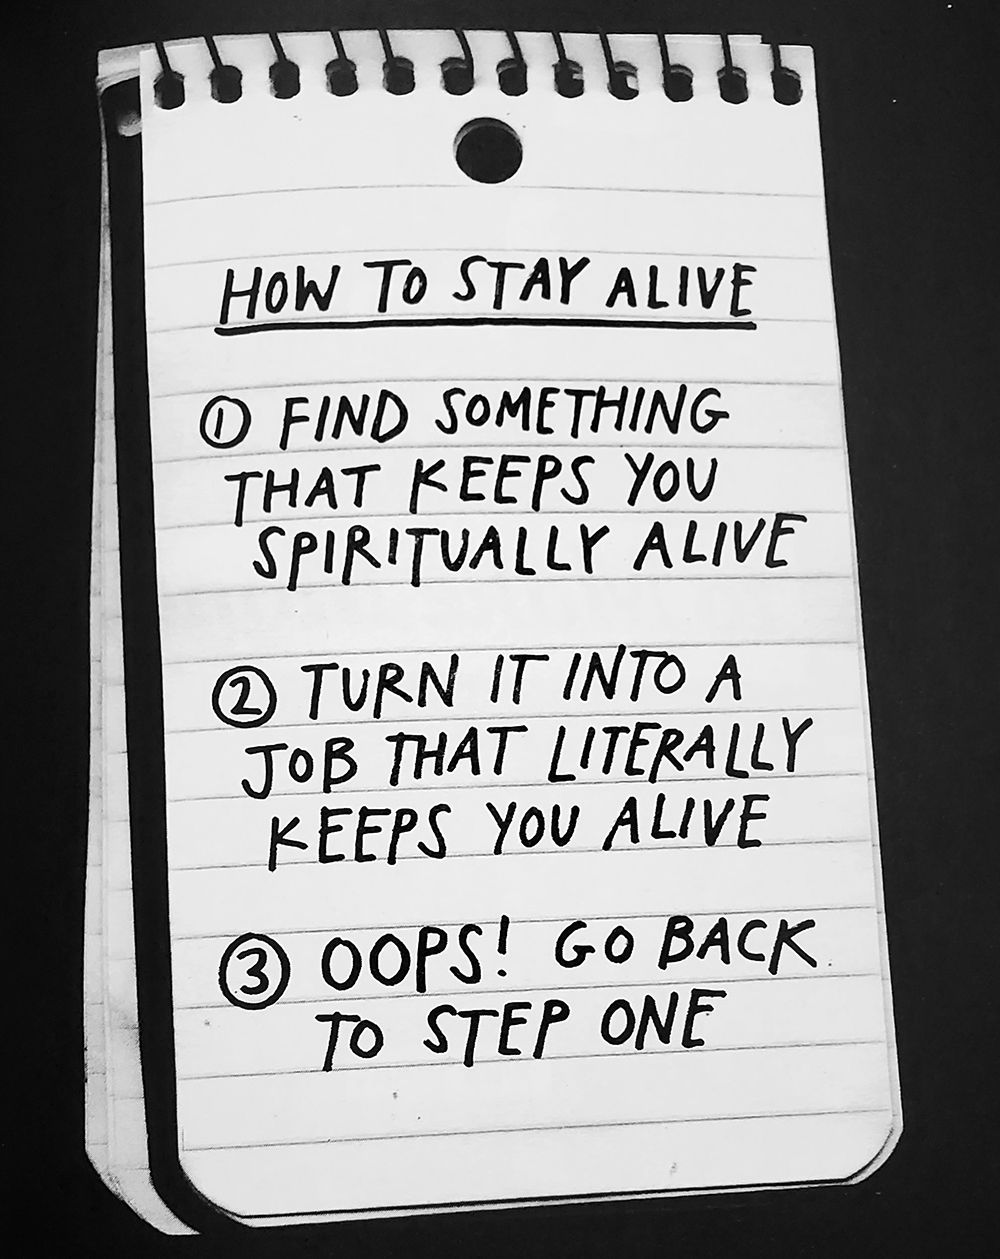 HOW TO STAY ALIVE
① FIND SOMETHING
THAT KEEPS YOU
SPIRITUALLY ALIVE
② TURN IT INTO A
JOB THAT LITERALLY
KEEPS YOU ALIVE
③ OOPS! GO BACK
TO STEP ONE